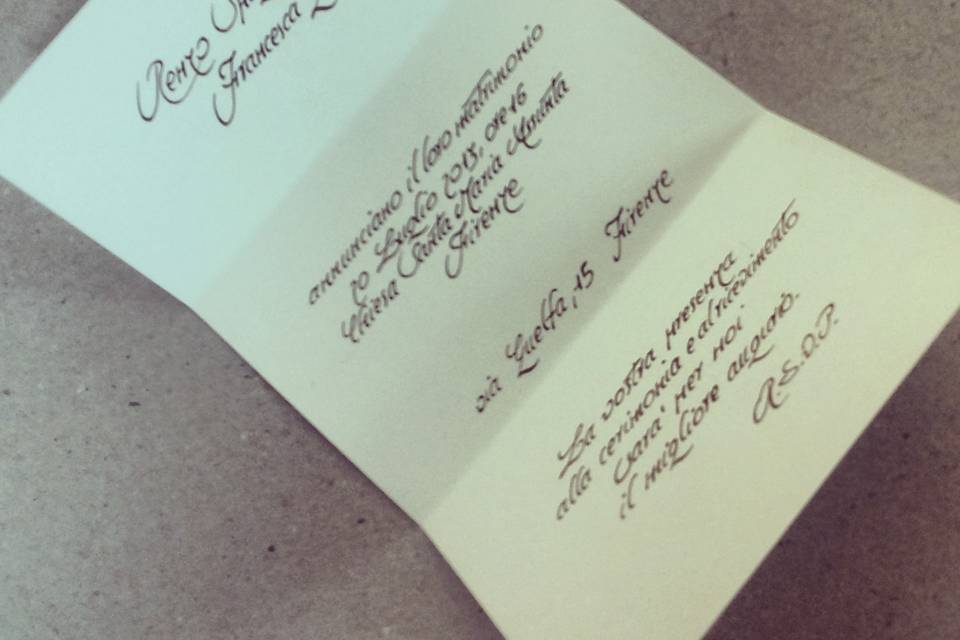 Renzo
Francesca
annunciano il loro matrimonio
20 Luglio 2013, ore 16
Chiesa Santa Maria Assunta
Firenze
via Guelfa, 15 Firenze
La vostra presenza
alla cerimonia e al ricevimento
sara' per noi
il migliore augurio.
R.S.V.P.